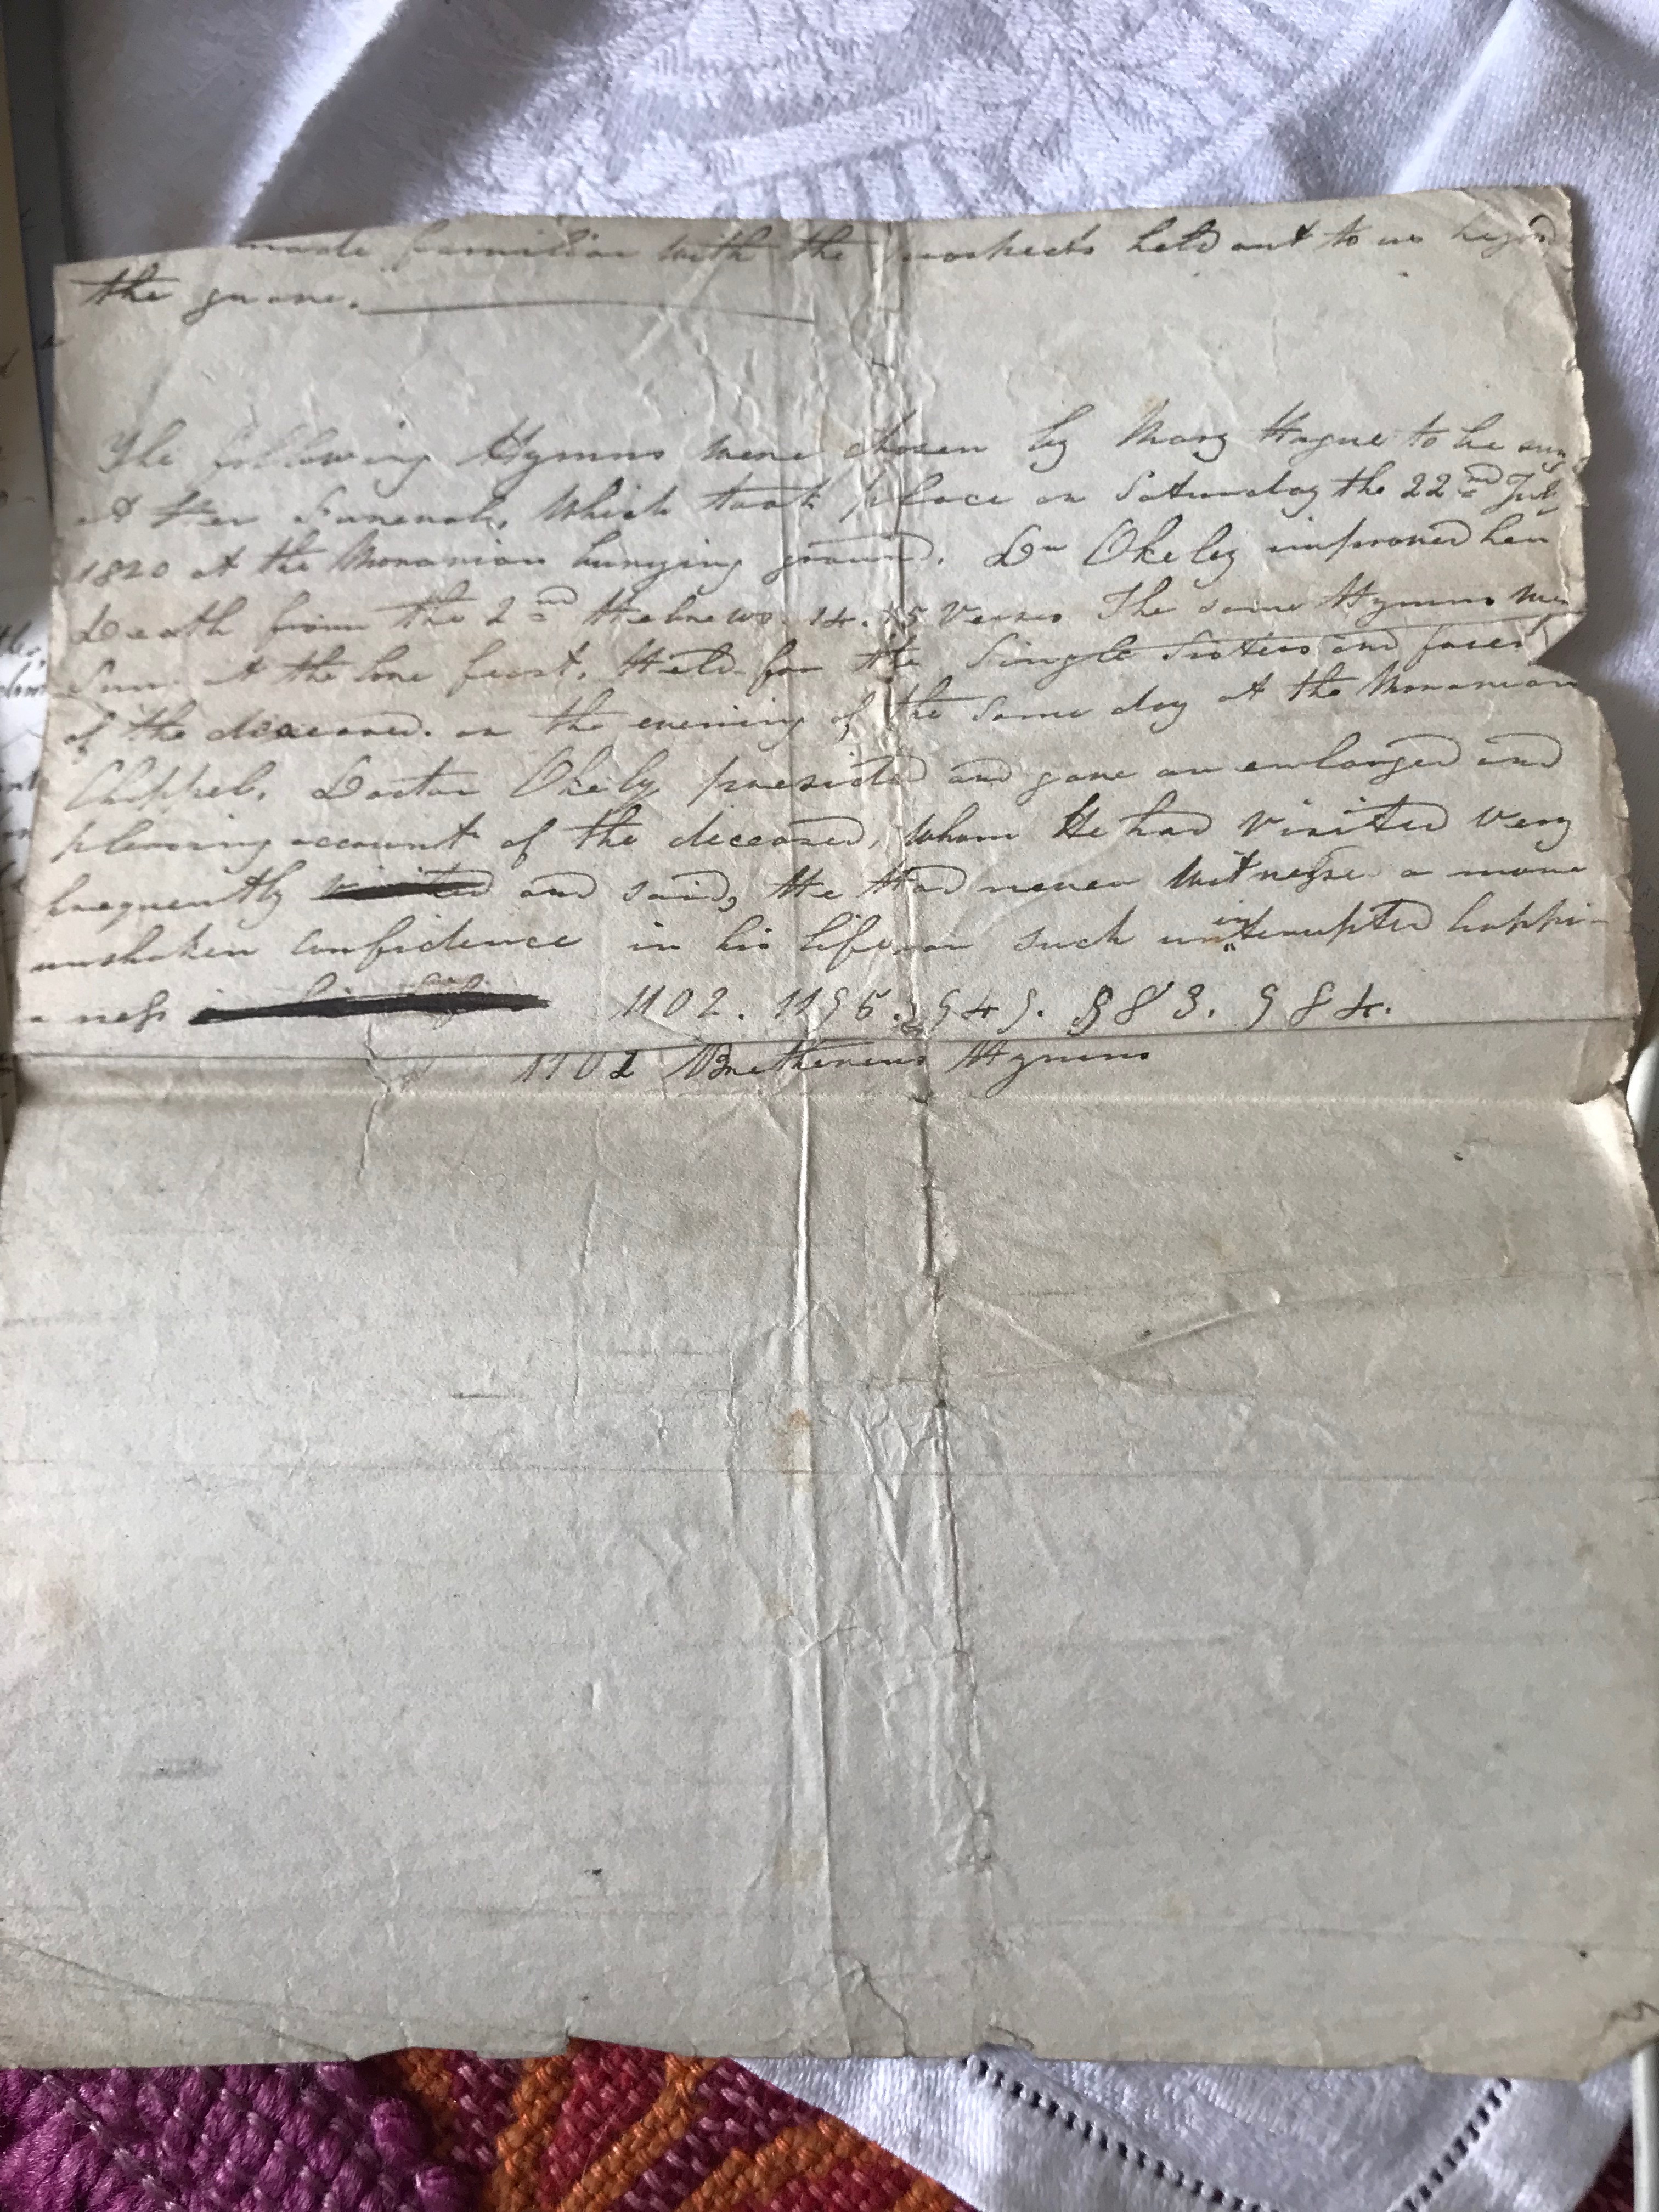 made familiar with the prospects held out to us beyond
the grave.
The following Hymns were chosen by Mary Hague to be sung
at Her Funeral, Which took place on Saturday the 22nd July
1820 at the Moravian burying ground. Dr Okeley improved her
Death from the 2nd Hebrews 14. 15 Verses The same Hymns were
Sung at the love feast, Held for the Single Sisters and
of the deceased. on the evening of the same day at the Moravian
Chappel, Doctor Okely presided and gave an enlarged and
pleasing account of the deceased, whom He had visited very
frequently visited and said, He Had never Witnesse a more
unshaken confidence in his life nor such uninterrupted happi-
-ness in his life 1102. 1195. 949. 983. 984.
1102 Bretherens Hymns